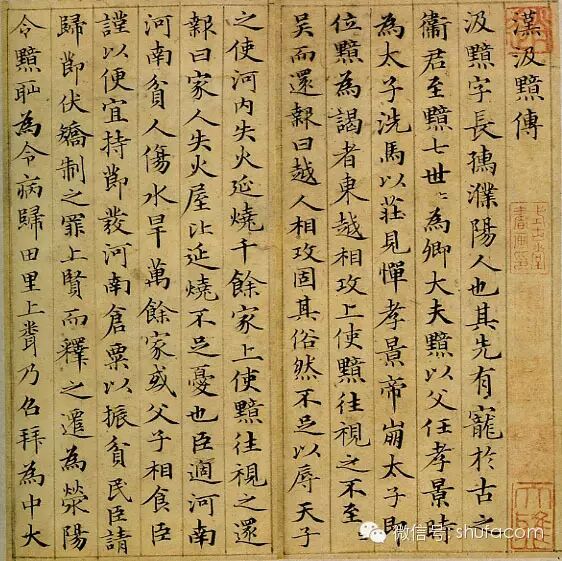 漢汲黯傳
汲黯字長孺濮陽人也其先有寵於古之
衞君至黯七世〻為卿大夫黯以父任孝景時
為太子洗馬以莊見憚孝景帝崩太子即
位黯為謁者東越相攻上使黯往視之不至
吳而還報曰越人相攻固其俗然不足以辱天子
之使河内失火延燒千餘家上使黯往視之還
報曰家人失火屋比延燒不足憂也臣適河南
河南貧人傷水旱萬餘家或父子相食臣
謹以便宜持節發河南倉粟以振貧民臣請
歸節伏矯制之罪上賢而釋之遷為滎陽
令黯恥為令病歸田里上聞乃召拜為中大
微信号: shufacom